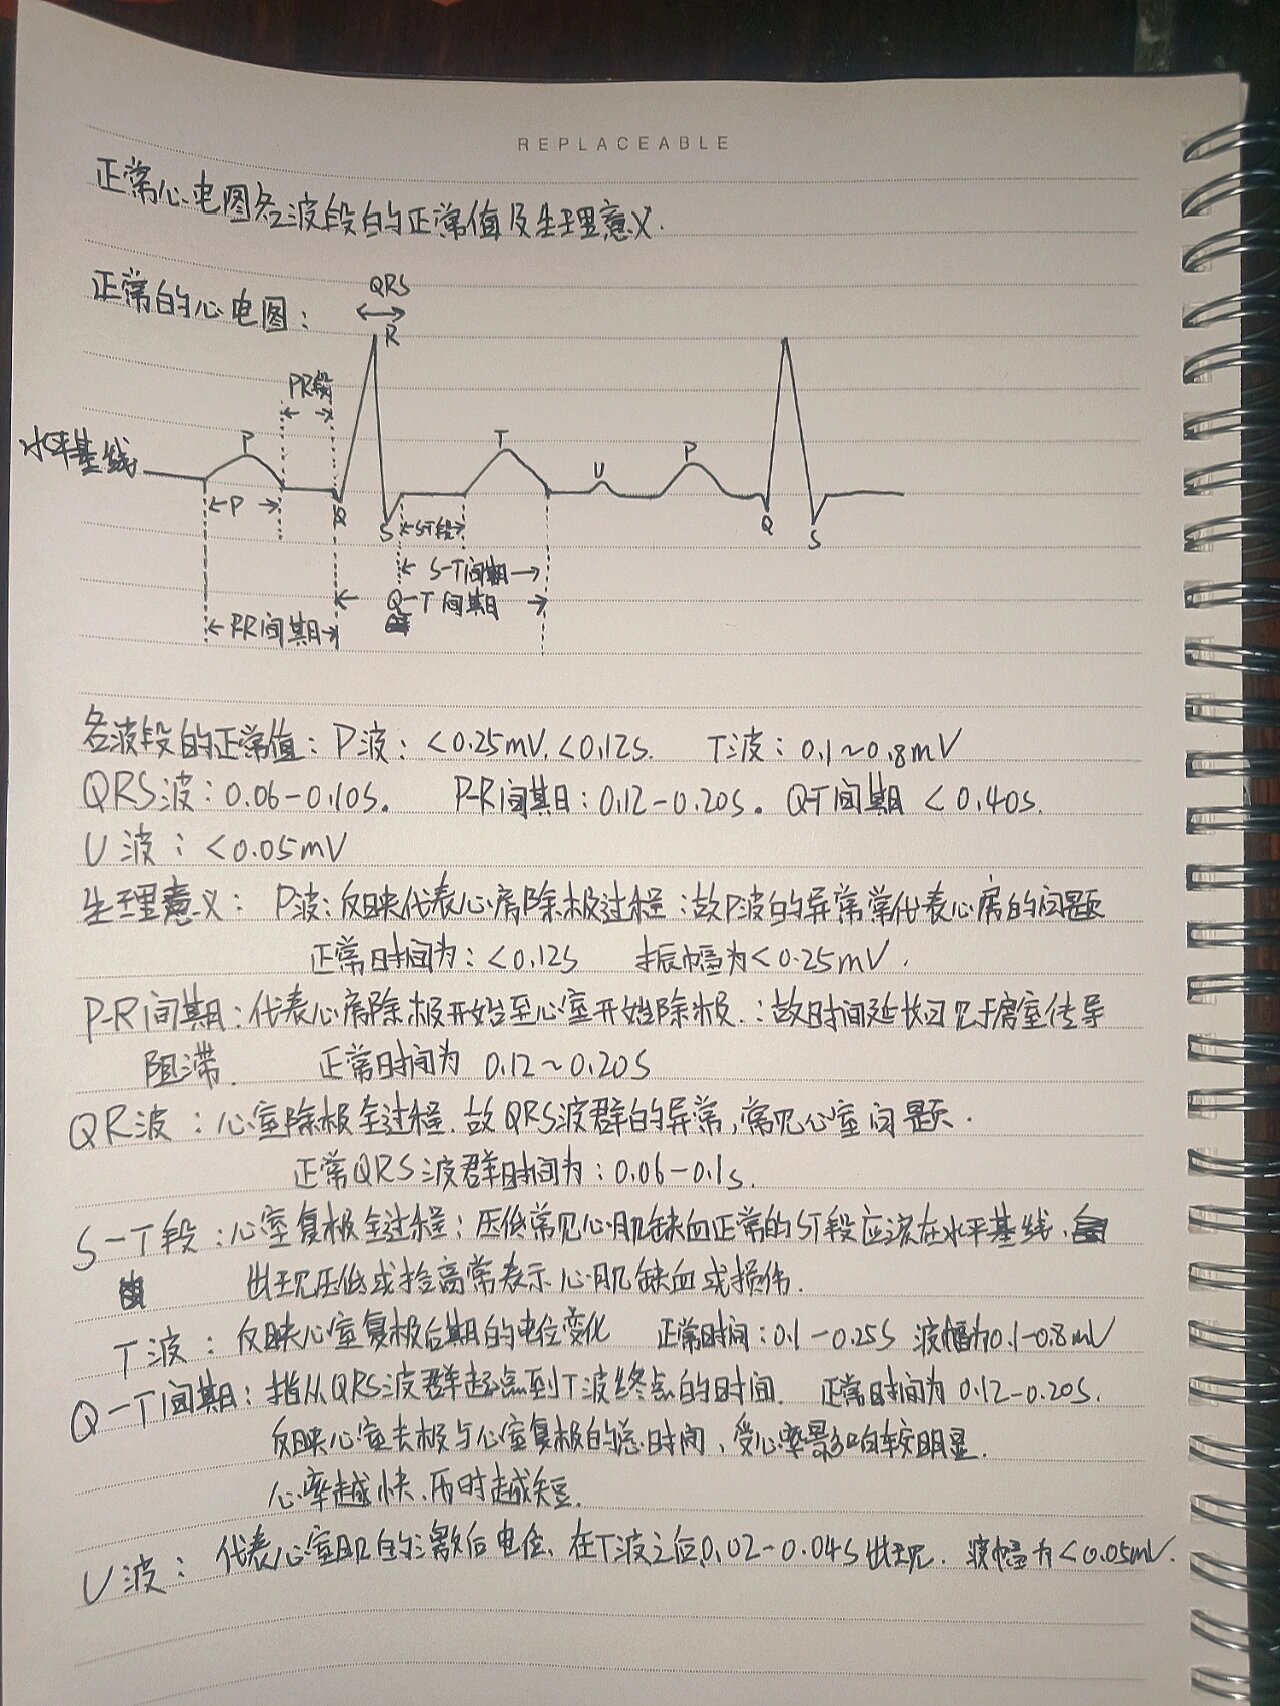 REPLACEABLE
正常心电图各波段的正常值及生理意义.
正常的心电图:
QRS
R
PR段
水平基线
P
T
U
P
P
Q
S
ST段
Q
S
S-T间期
Q-T间期
PR间期
各波段的正常值: P波: <0.25mV. <0.12s. T波: 0.1~0.8mV
QRS波: 0.06-0.10s。 P-R间期: 0.12-0.20s。 Q-T间期 <0.40s.
U波: <0.05mV
生理意义: P波: 反映代表心房除极过程: 故P波的异常常代表心房的问题
正常时间为: <0.12s 振幅为<0.25mV.
P-R间期: 代表心房除极开始至心室开始除极.: 故时间延长习见于房室传导
阻滞. 正常时间为 0.12~0.20s
QR波: 心室除极全过程. 故QRS波群的异常, 常见心室问题.
正常QRS波群时间为: 0.06-0.1s.
S-T段: 心室复极全过程: 压低常见心肌缺血正常的ST段应该在水平基线.
出现压低或抬高常表示心肌缺血或损伤.
T波: 反映心室复极后期的电位变化 正常时间: 0.1-0.25s 波幅为0.1-0.8mV
Q-T间期: 指从QRS波群起点到T波终点的时间. 正常时间为 0.12-0.20s.
反映心室去极与心室复极的总时间, 受心率影响较明显.
心率越快, 历时越短.
U波: 代表心室肌的激后电位, 在T波之后0.02-0.04s出现. 波幅为<0.05mV.